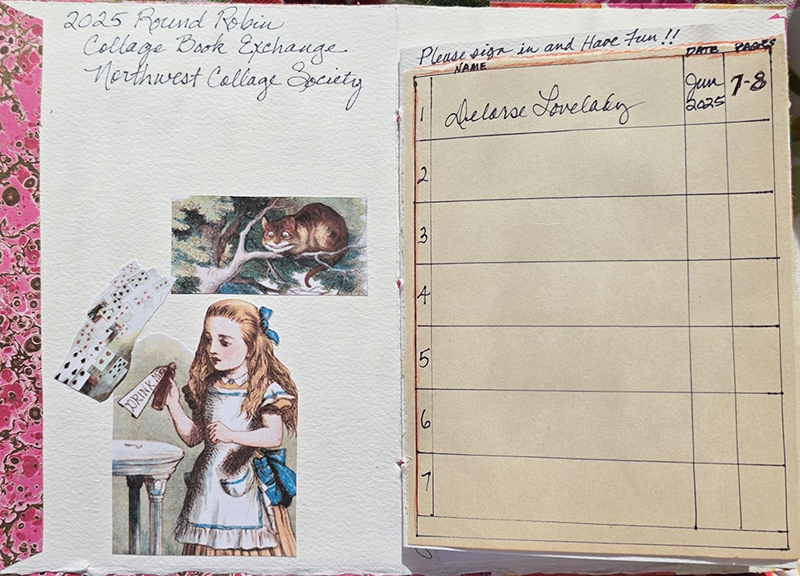 2025 Round Robin
Collage Book Exchange
Northwest Collage Society
DRINK ME
Please sign in and Have Fun!!
NAME DATE PAGES
1 Delorse Lovelady Jun 2025 7-8
2
3
4
5
6
7